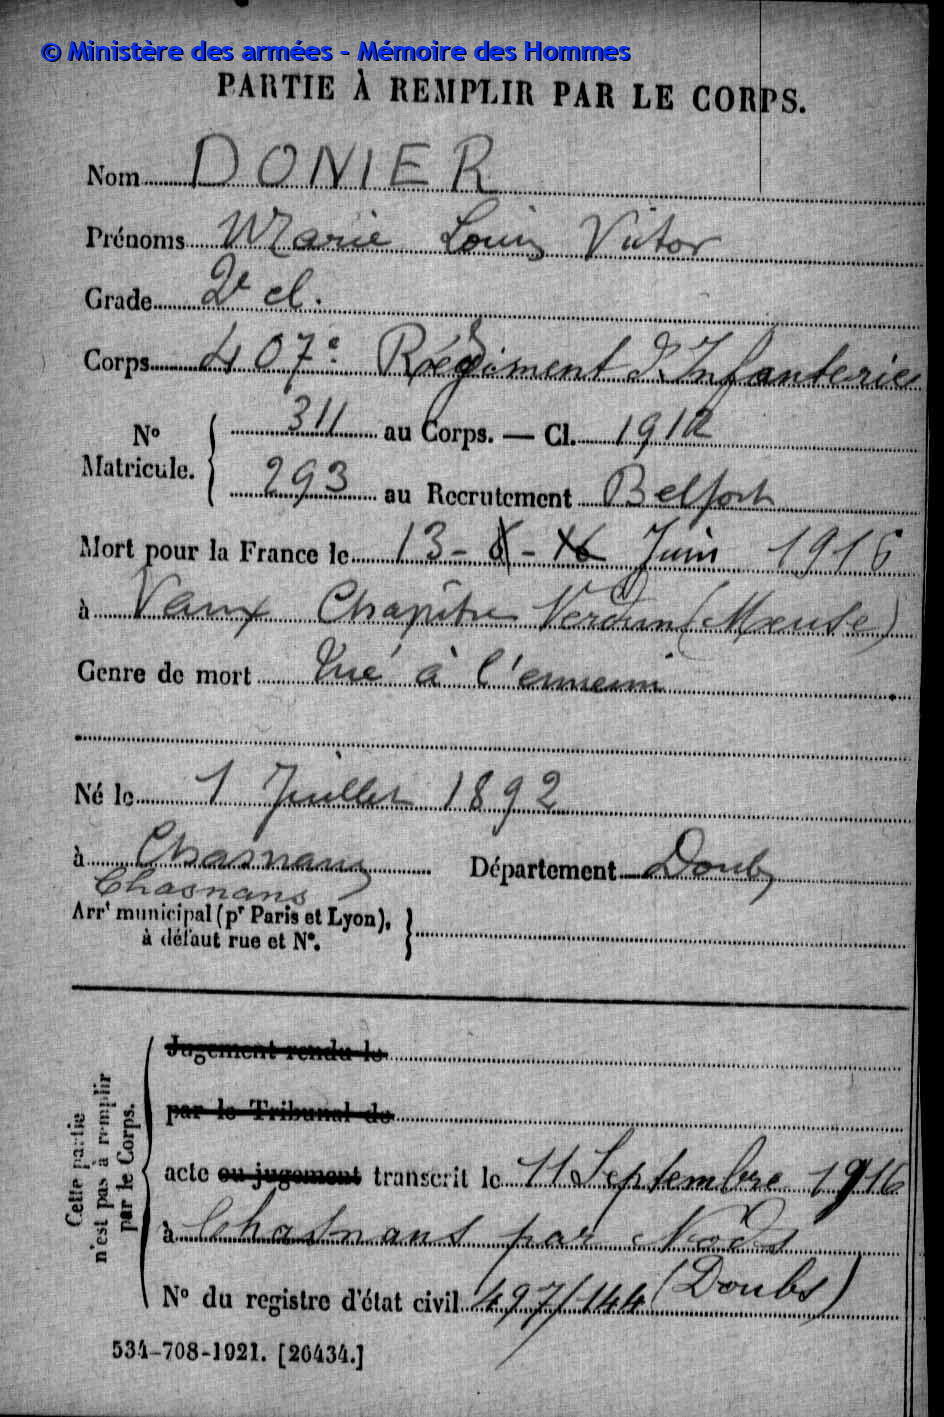 © Ministère des armées - Mémoire des Hommes
PARTIE À REMPLIR PAR LE CORPS.
Nom DONIER
Prénoms Marie Louis Victor
Grade 2e cl.
Corps 407e Régiment d'Infanterie
No Matricule. { 311 au Corps. — Cl. 1912
293 au Recrutement Belfort
Mort pour la France le 13 - 6 - 16 Juin 1916
à Vaux Chapitre Verdun (Meuse)
Genre de mort Tué à l'ennemi
Né le 1 Juillet 1892
à Chasnans Département Doubs
Chasnans
Arrt municipal (pr Paris et Lyon),
à défaut rue et No.
Cette partie n'est pas à remplir par le Corps.
Jugement rendu le
par le Tribunal de
acte ou jugement transcrit le 11 Septembre 1916
à Chasnans par Nods
(Doubs)
No du registre d'état civil 497/144
534-708-1921. [26434.]